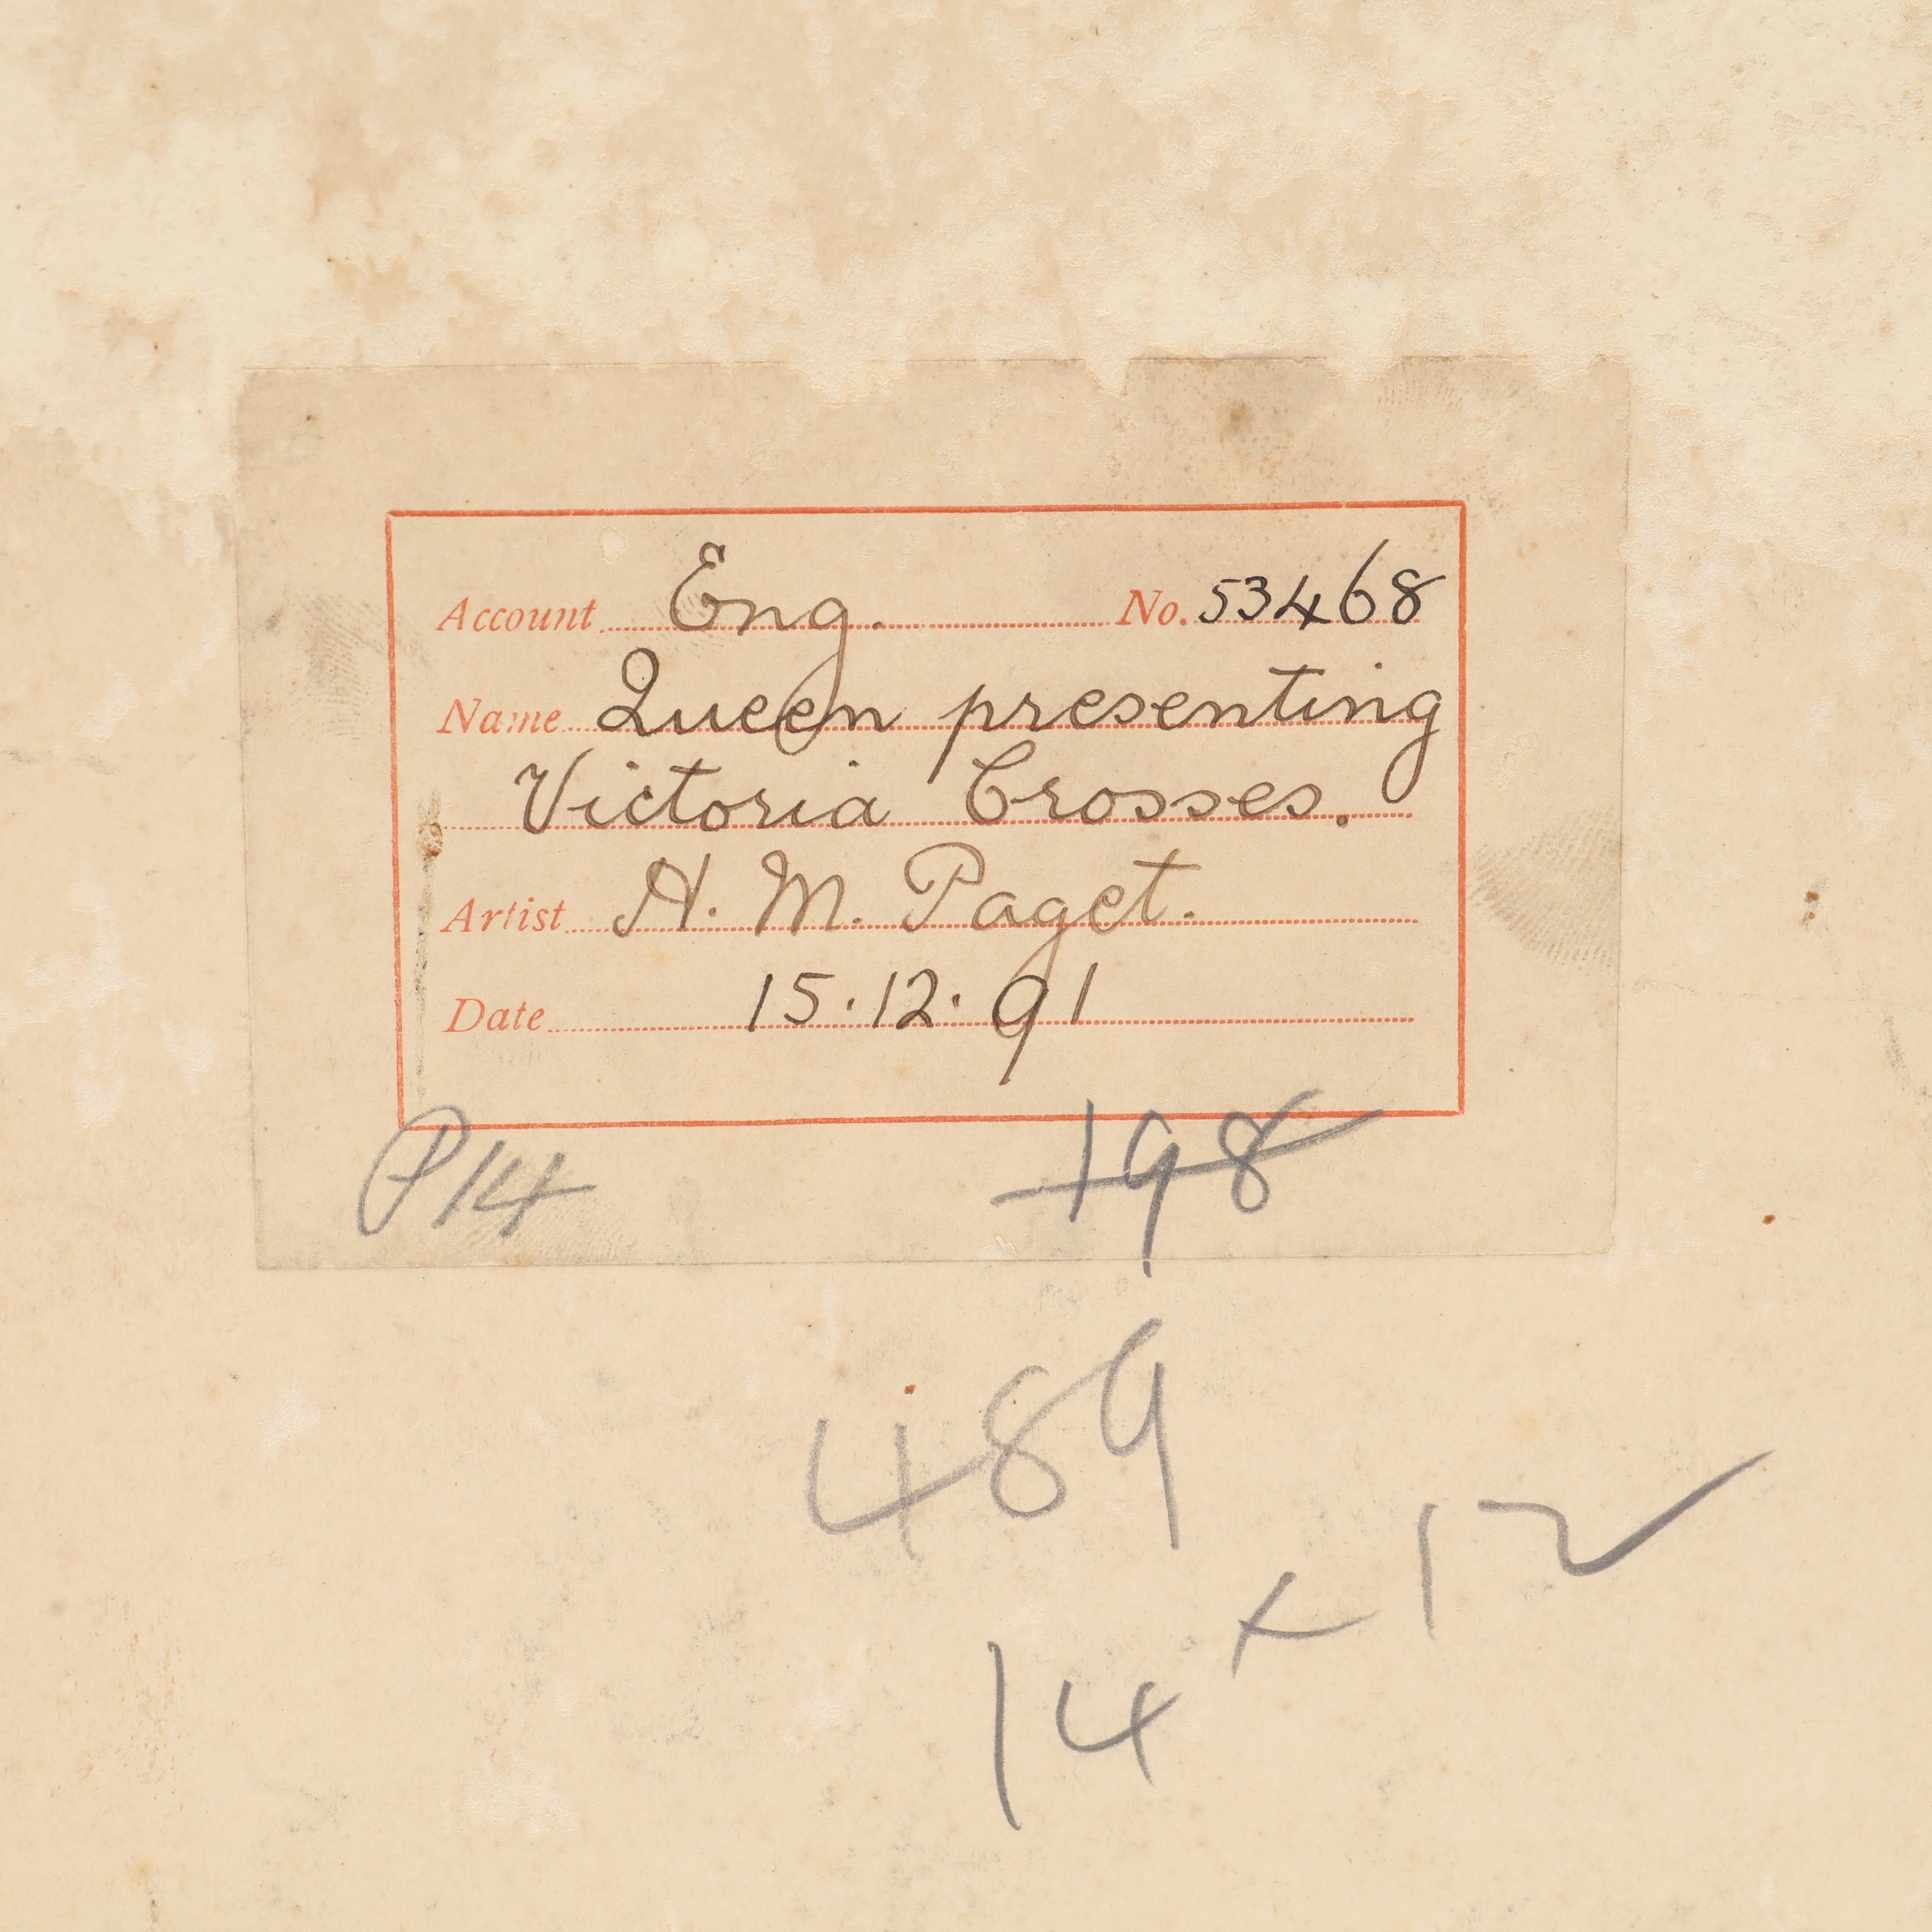 Account Eng. No. 53468
Name Queen presenting
Victoria Crosses.
Artist H. M. Paget.
Date 15.12.91
P14 198
489
14 x 12